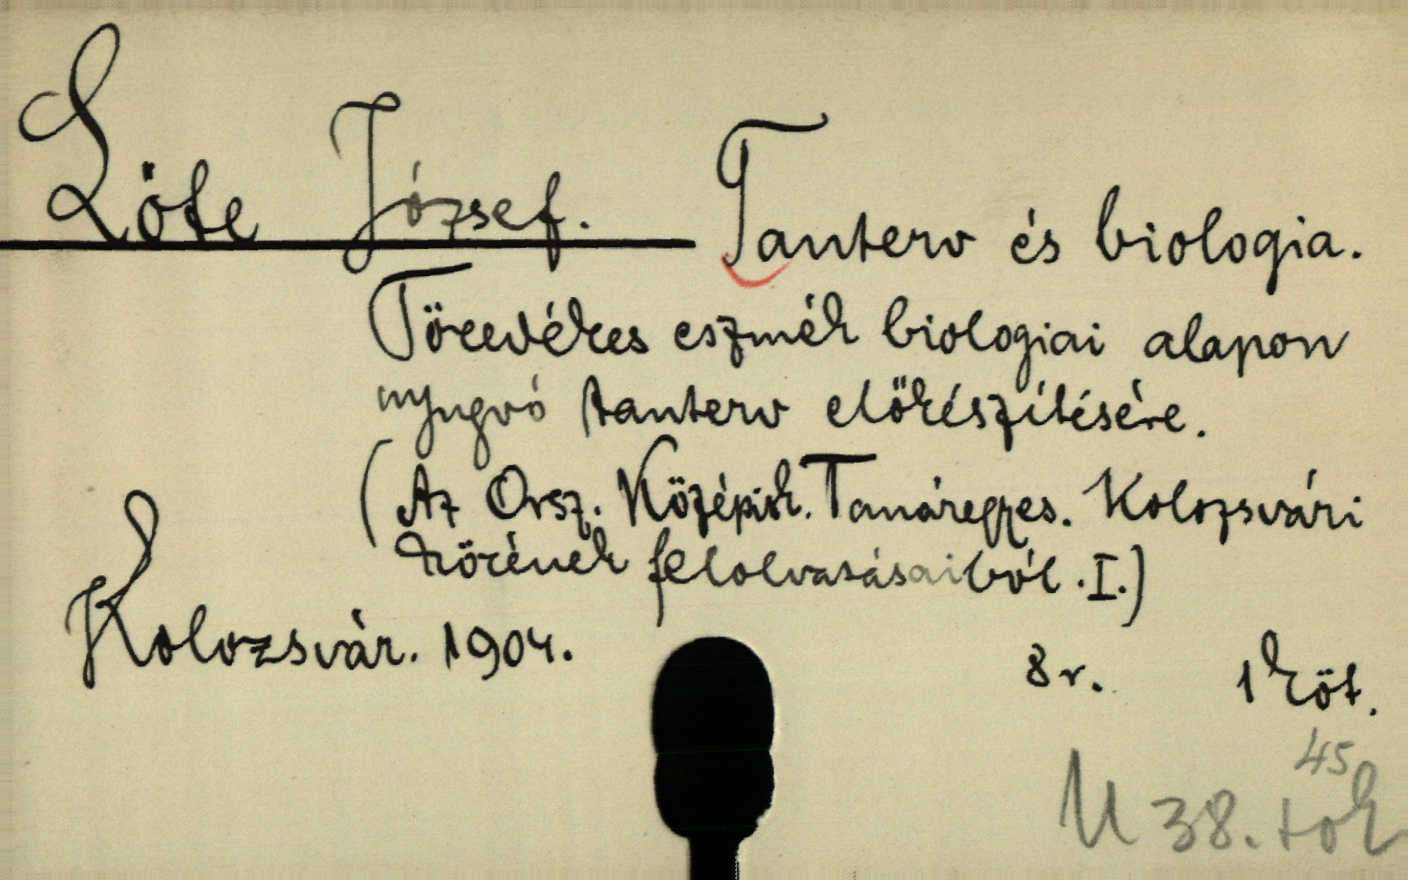 Löte József. Tanterv és biologia.
Töredékes eszmék biologiai alapon
nyugvó tanterv előkészítésére.
(Az Orsz. Középisk. Tanáregyes. Kolozsvári
körének felolvasásaiból. I.)
Kolozsvár. 1904.
8r. 1 köt.
45
U 38. tok